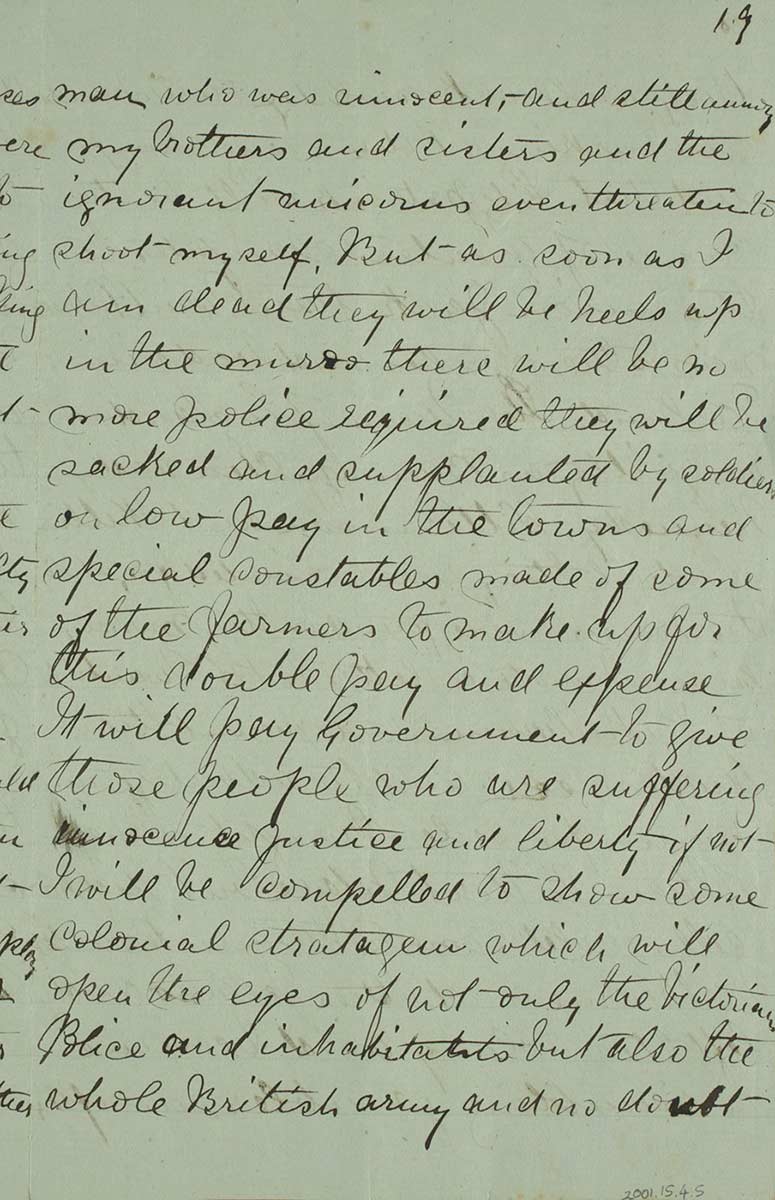 19
man who was innocent, and still annoy
my brothers and sisters and the
ignorant unicorns even threaten to
shoot myself. But as soon as I
am dead they will be heels up
in the muroo there will be no
more police required they will be
sacked and supplanted by soldiers
on low pay in the towns and
special constables made of some
of the farmers to make up for
this double pay and expense
It will pay Government to give
those people who are suffering
innocence justice and liberty if not
I will be compelled to show some
colonial stratagem which will
open the eyes of not only the Victorian
Police and inhabitants but also the
whole British army and no doubt
2001.15.4.5